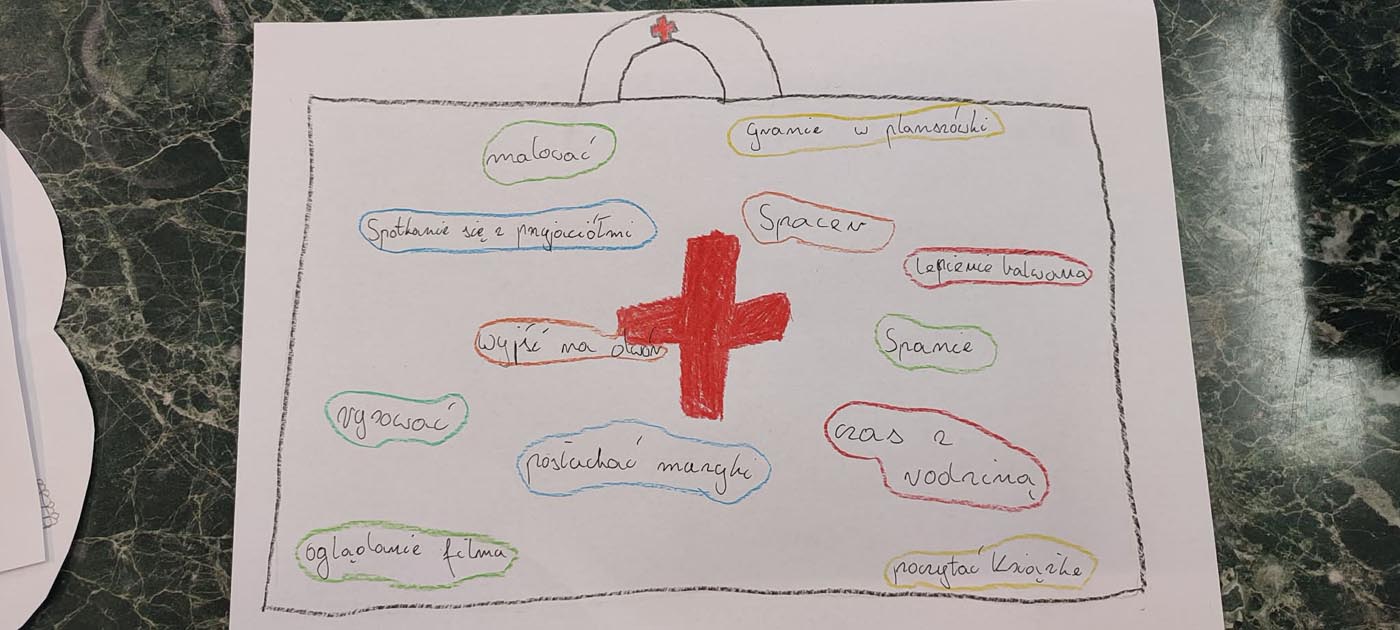 malować
granie w planszówki
Spotkanie się z przyjaciółmi
Spacer
Lepienie bałwana
wyjść na dwór
Spanie
rysować
czas z
rodziną
posłuchać muzyki
oglądanie filmu
poczytać Książkę